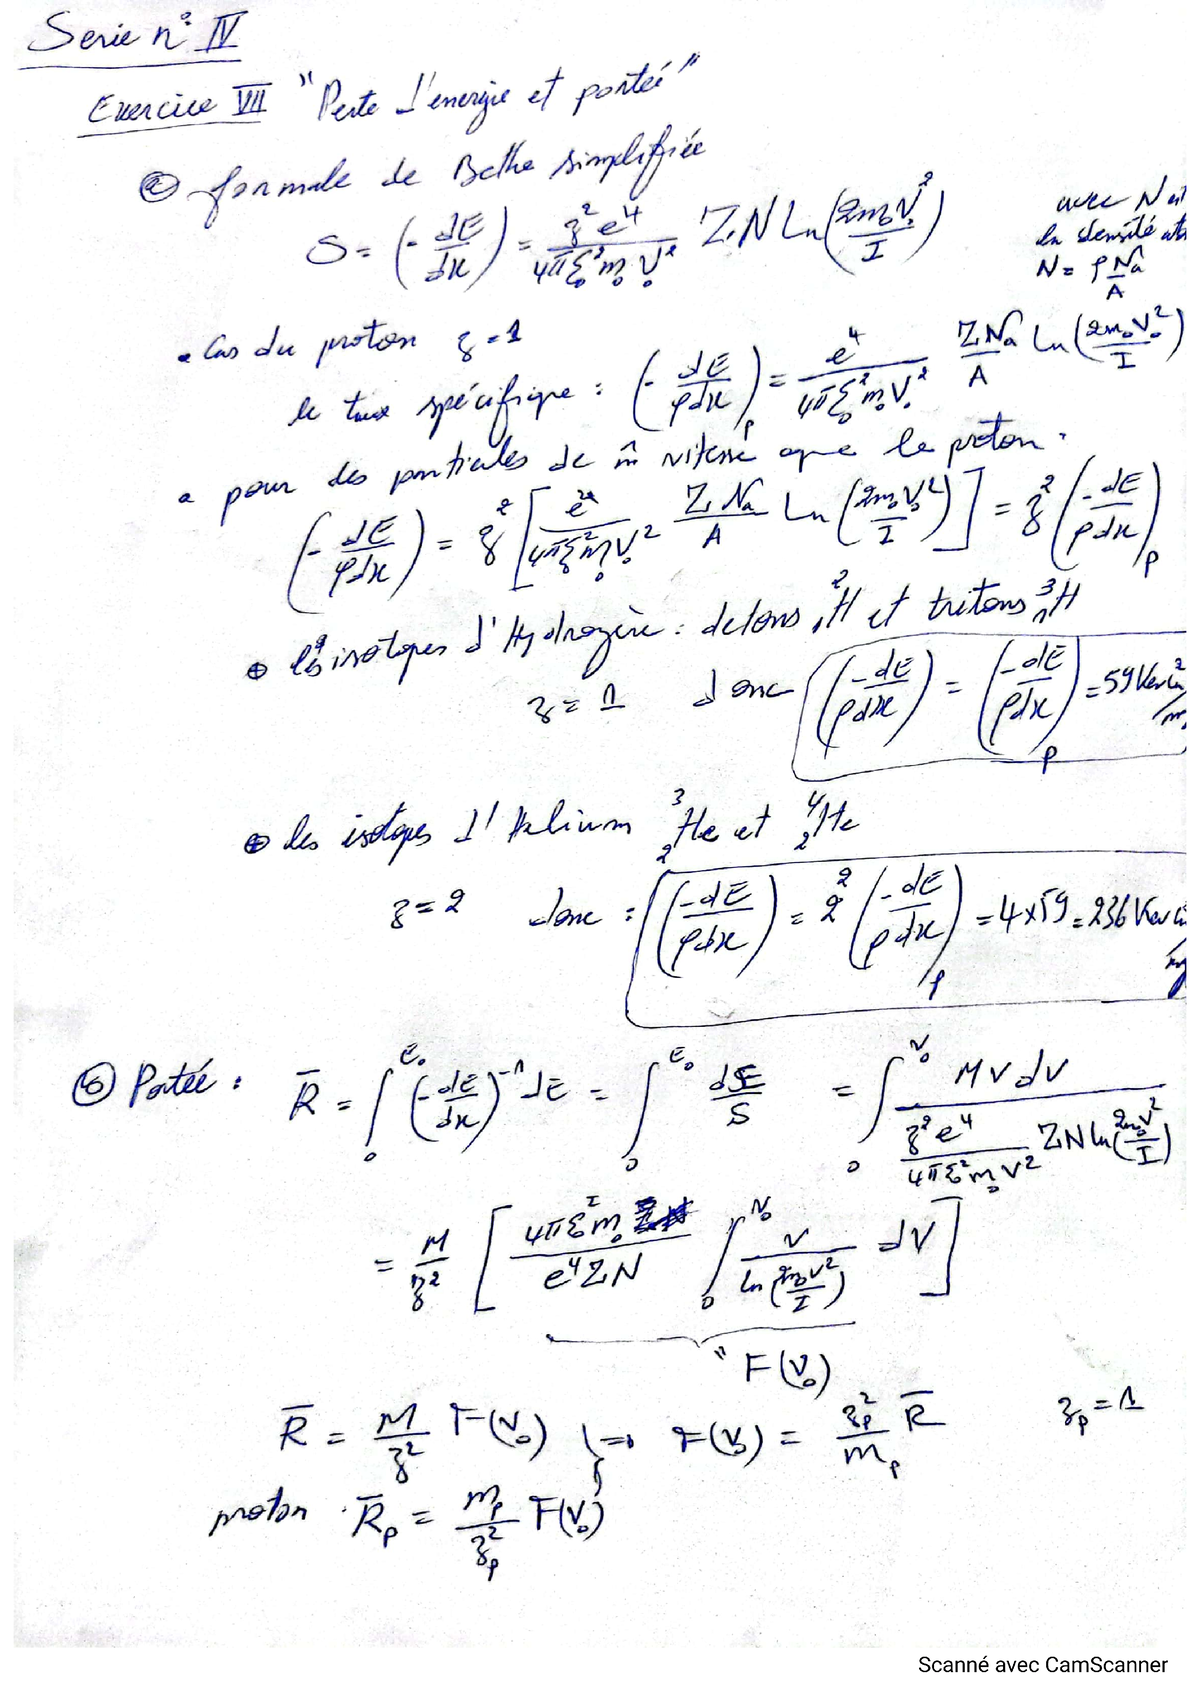 Serie n° IV
Exercice VII "Perte d'energie et portée"
ⓐ formule de Bethe simplifiée
S = (-dE/dx) = z² e⁴ / 4π ε₀² m₀ V₀² ZN Ln(2m₀V₀²/I)
avec N est
la densité
N = ρ Na/A
• Cas du proton z = 1
le taux spécifique : (-dE/ρdx)p = e⁴ / 4π ε₀² m₀ V₀² Z Na/A Ln(2m₀V₀²/I)
• pour des particules de m̂ vitesse que le proton.
(-dE/ρdx) = z² [e⁴ / 4π ε₀² m₀ V₀² Z Na/A Ln(2m₀V₀²/I)] = z² (-dE/ρdx)p
⊕ les isotopes d'Hydrogène : detons ²₁H et tritons ³₁H
z = 1 donc (-dE/ρdx) = (-dE/ρdx)p = 59 Kev cm²/m
⊕ les isotopes d'Helium ³₂He et ⁴₂He
z = 2 donc : (-dE/ρdx) = 2² (-dE/ρdx)p = 4×59 = 236 Kev c/mg
ⓑ Portée : R̄ = ∫₀^E₀ (-dE/dx)⁻¹ dE = ∫₀^E₀ dE/S = ∫₀^V₀ MVdV / (z² e⁴ / 4π ε₀² m₀ V² ZN ln(2m₀V²/I))
= M/z² [4π ε₀² m₀ / e⁴ZN ∫₀^V₀ V / ln(2m₀V²/I) dV]
" F(V₀)
R̄ = M/z² F(V₀) } ⇒ F(V₀) = zp²/mp R̄ zp = 1
proton . R̄p = mp/zp² F(V₀)
Scanné avec CamScanner